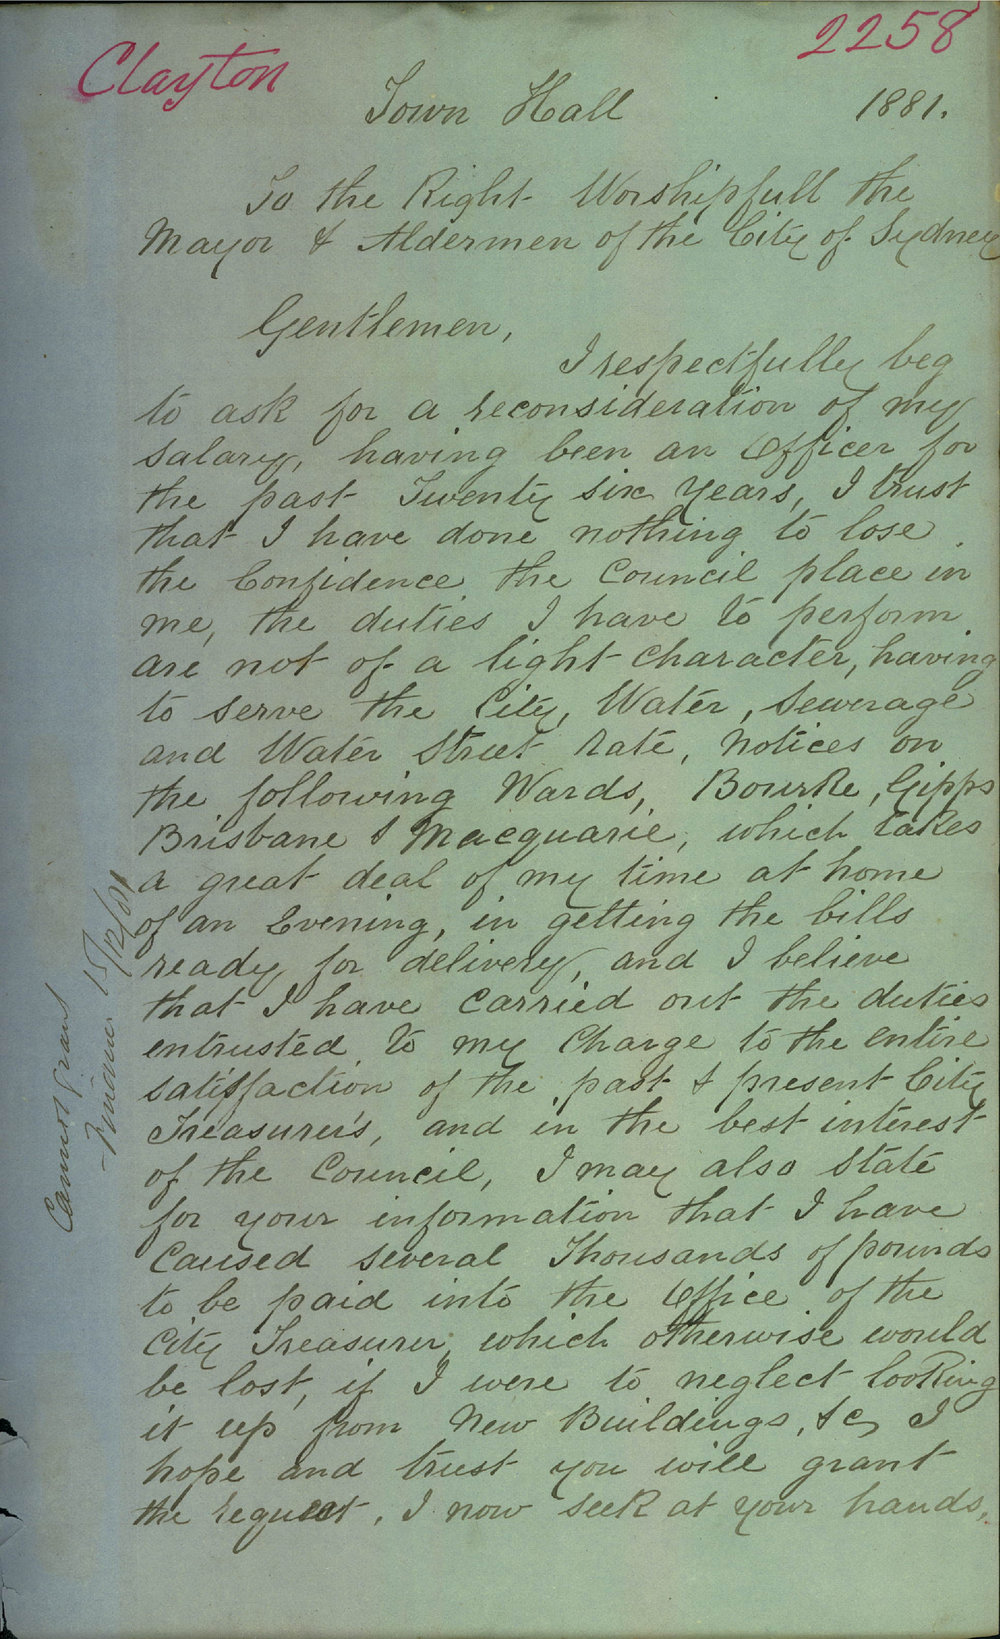 Clayton
2258
Town Hall 1881.
To the Right Worshipfull the
Mayor & Aldermen of the City of Sydney
Gentlemen,
I respectfully beg
to ask for a reconsideration of my
salary, having been an Officer for
the past Twenty six Years, I trust
that I have done nothing to lose
the Confidence the Council place in
me, the duties I have to perform
are not of a light character, having
to serve the City, Water, Sewerage
and Water Street rate, Notices on
the following Wards, Bourke, Gipps
Brisbane & Macquarie, which takes
a great deal of my time at home
of an Evening, in getting the bills
ready for delivery, and I believe
that I have Carried out the duties
entrusted to my Charge to the entire
satisfaction of the past & present City
Treasurer's, and in the best interest
of the Council, I may also State
for your information that I have
Caused several Thousands of pounds
to be paid into the Office of the
City Treasurer, which otherwise would
be lost, if I were to neglect looking
it up from New Buildings, &c, I
hope and trust you will grant
the request, I now seek at your hands,
Cannot grant
Finance 15/12/81